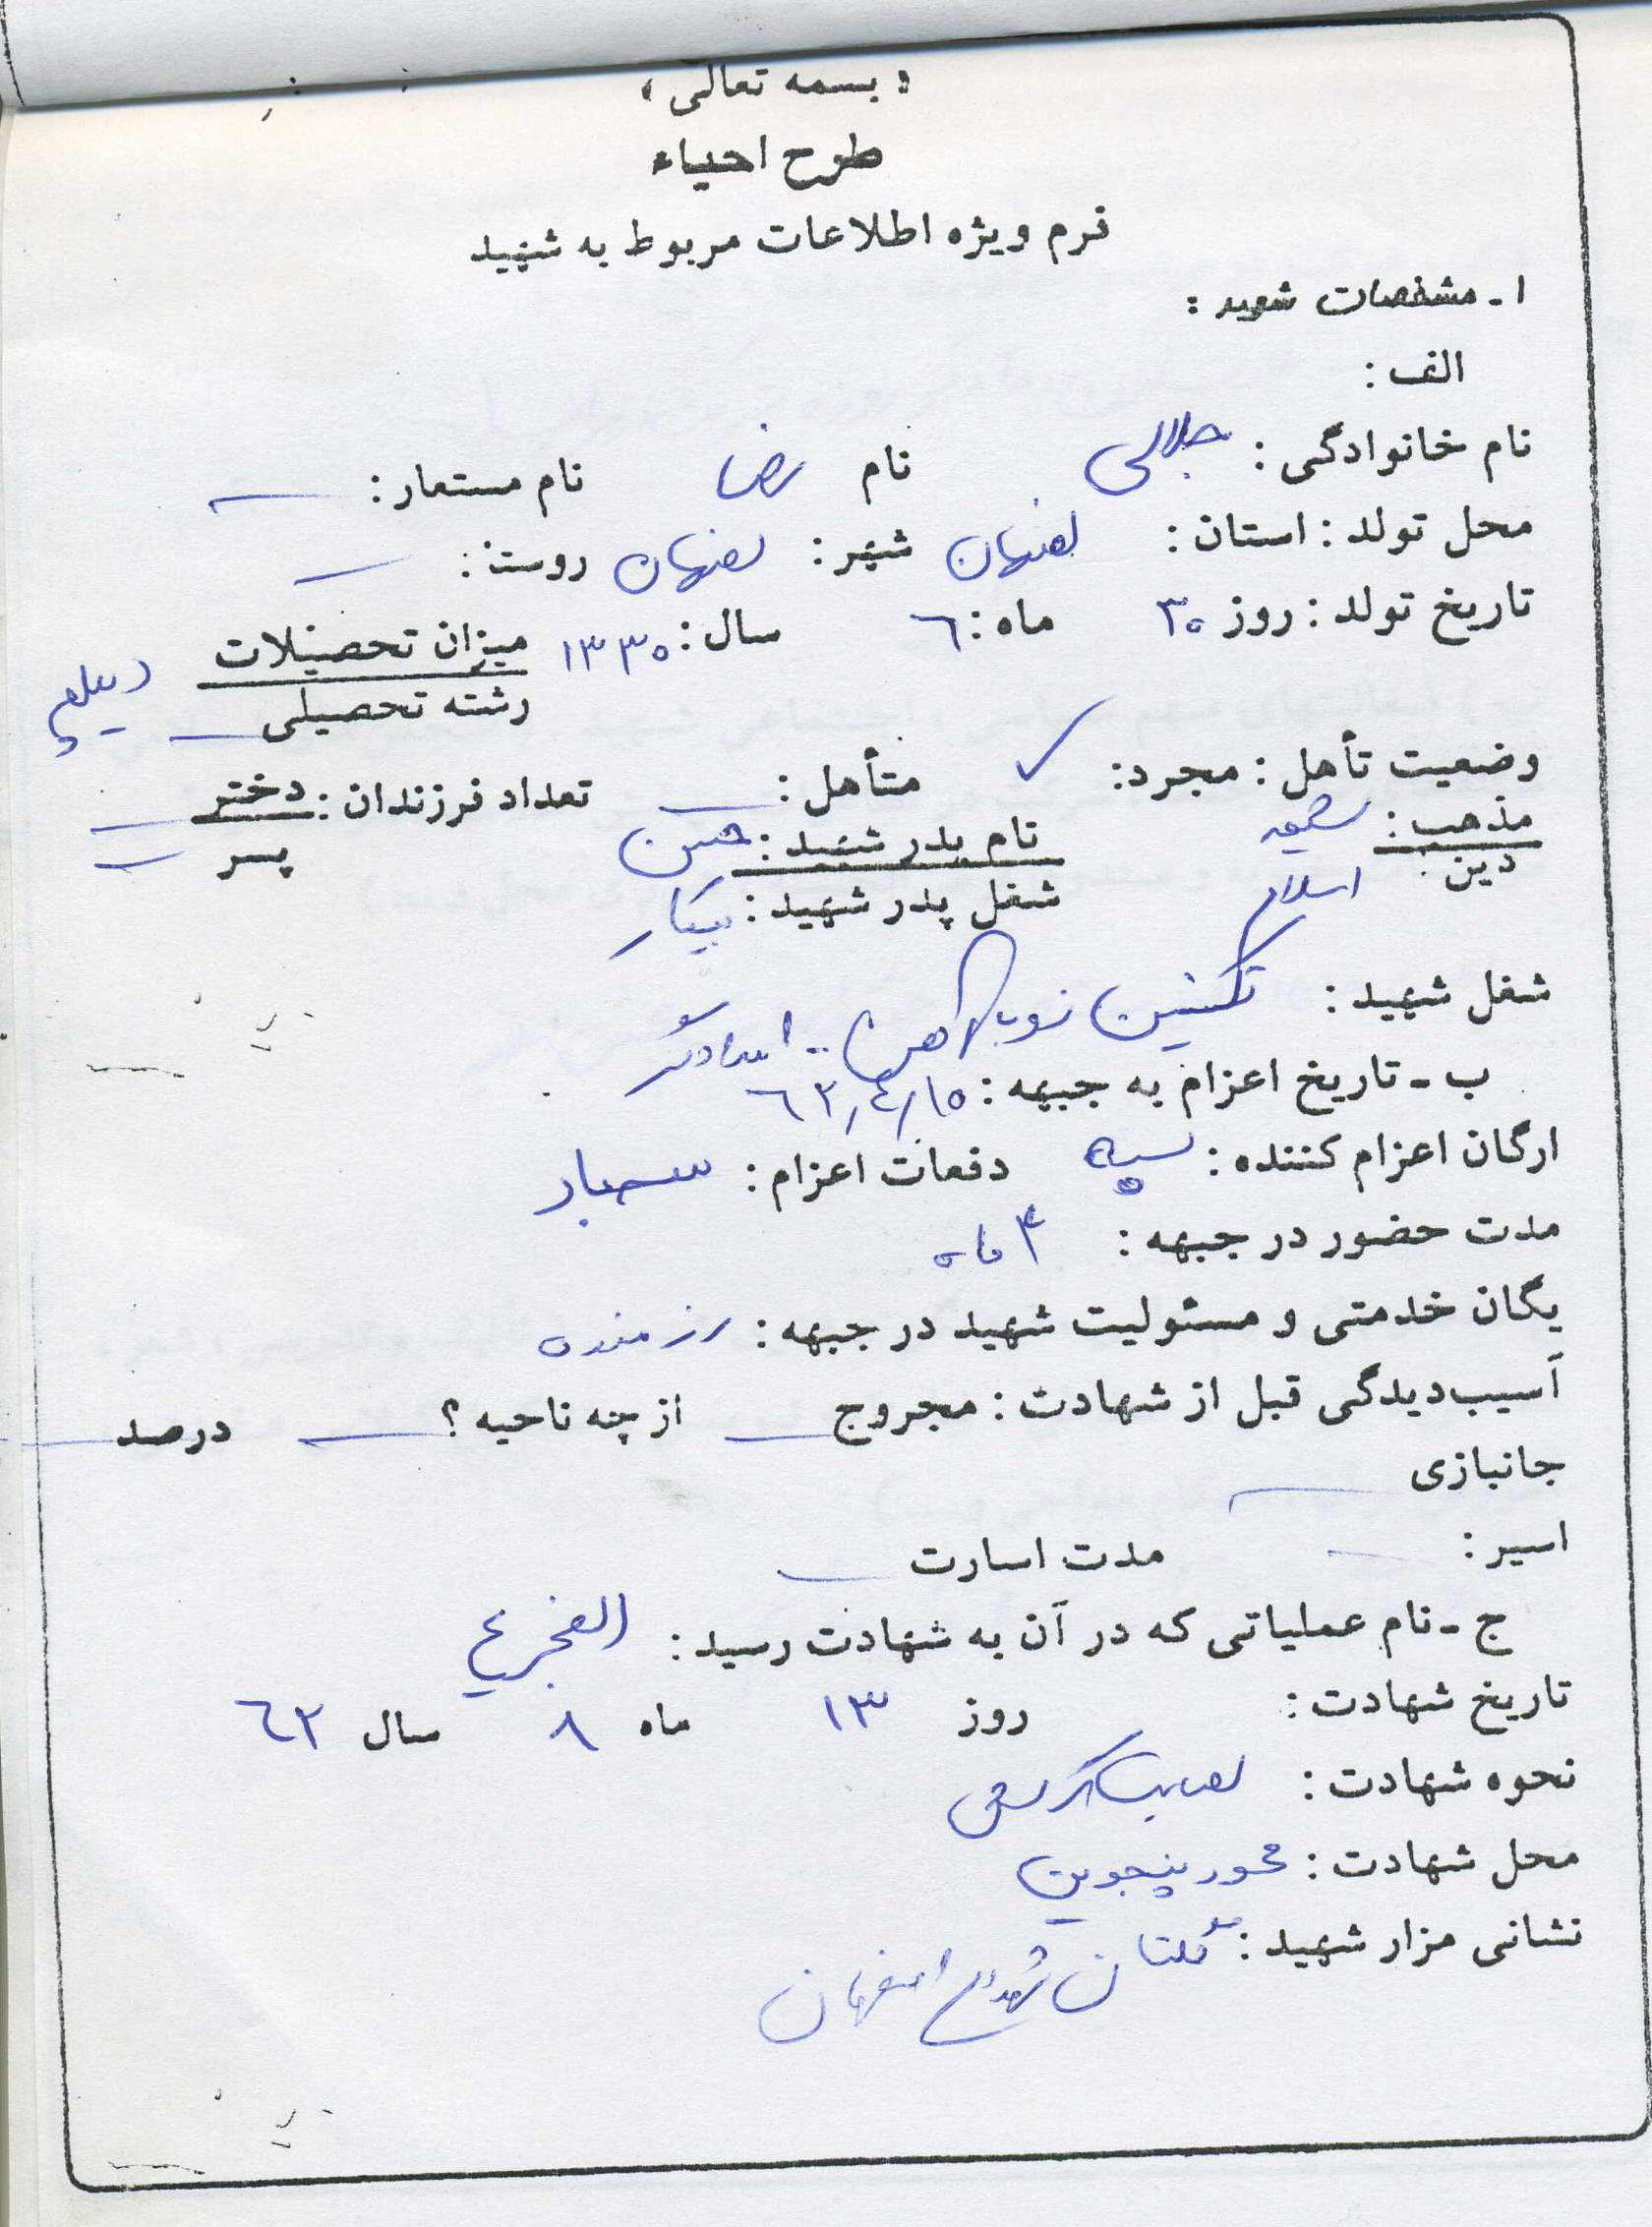 « بسمه تعالی »
طرح احیاء
فرم ویژه اطلاعات مربوط به شهید
۱ - مشخصات شهید :
الف :
نام خانوادگی : جلالی نام رضا نام مستعار : —
محل تولد : استان : اصفهان شهر : اصفهان روستا : —
تاریخ تولد : روز ۳۰ ماه : ٦ سال : ۱۳۳۰ میزان تحصیلات دیپلم
رشته تحصیلی —
وضعیت تأهل : مجرد : ✓ متأهل : — تعداد فرزندان : دختر —
پسر —
مذهب : شیعه نام پدر شهید : حسن
دین : اسلام شغل پدر شهید : بیکار
شغل شهید : تکنسین ذوب آهن - امدادگر
ب - تاریخ اعزام به جبهه : ٦۲/٤/۱۵
ارگان اعزام کننده : سپاه دفعات اعزام : سه بار
مدت حضور در جبهه : ۳ ماه
یگان خدمتی و مسئولیت شهید در جبهه : رزمنده
آسیب‌دیدگی قبل از شهادت : مجروح — از چه ناحیه ؟ — درصد —
جانبازی —
اسیر : — مدت اسارت —
ج - نام عملیاتی که در آن به شهادت رسید : الفجر ٤
تاریخ شهادت : روز ۱۳ ماه ۸ سال ٦۲
نحوه شهادت : اصابت ترکش
محل شهادت : محور پنجوین
نشانی مزار شهید : گلستان شهدای اصفهان